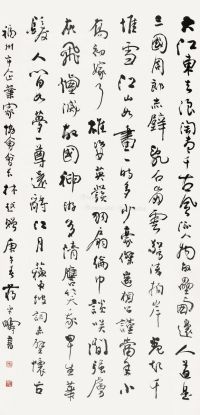 大江東去浪淘盡千古風流人物故壘西邊人道是
三國周郎赤壁亂石崩雲驚濤拍岸卷起千
堆雪江山如畫一時多少豪傑遙想公瑾當年小
喬初嫁了雄姿英發羽扇綸巾談笑間強虜
灰飛煙滅故國神游多情應笑我早生華
髮人間如夢一尊還酹江月蘇東坡詞赤壁懷古
福州市企業家協會會長林 庚午蔣平疇書